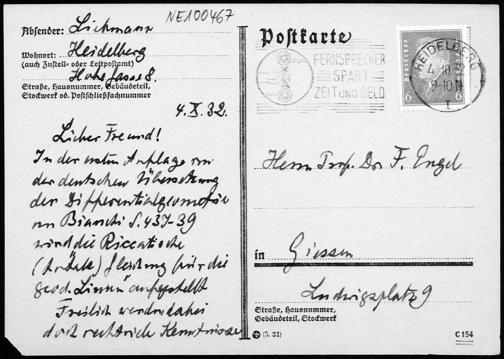 NE100467
Absender: Liebmann
Wohnort: Heidelberg
(auch Zustell- oder Leitpostamt)
Hohe Gasse 8.
Straße, Hausnummer, Gebäudeteil,
Stockwerk od. Postschließfachnummer
4. X. 32.
Lieber Freund!
In der ersten Auflage von
der deutschen Übersetzung
der Differentialgeometrie
von Bianchi S. 437-39
wird die Riccatische
Gleichung für die
geod. Linien aufgestellt
Freilich werden dabei
doch Kenntnisse
Postkarte
FERNSPRECHER
SPART
ZEIT UND GELD
HEIDELBERG
4.10.
9-10 N
6 6
Herrn Prof. Dr. F. Engel
in Giessen
Ludwigsplatz 9
Straße, Hausnummer,
Gebäudeteil, Stockwerk
(5. 31)
C 154